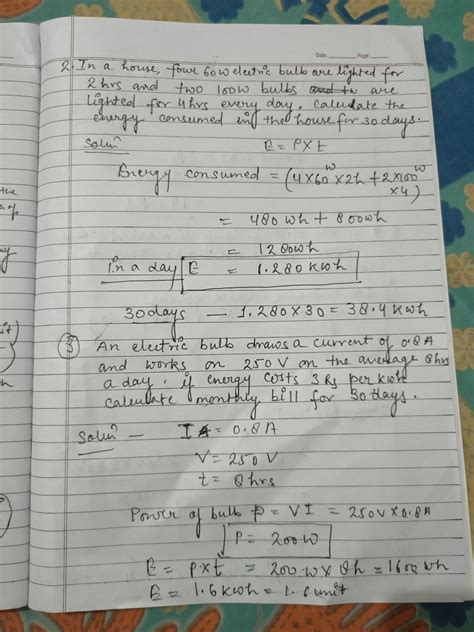 Date Page
2. In a house, four 60w electric bulb are lighted for
2 hrs and two 100W bulbs are
lighted for 4 hrs every day. Calculate the
energy consumed in the house for 30 days.
Soln
E = P×t
Energy consumed = (4×60w×2h + 2×100w
×4)
= 480 wh + 800wh
= 1280wh
in a day E = 1.280 kwh
30 days — 1.280×30 = 38.4 kwh
3 An electric bulb draws a current of 0.8A
and works on 250V on the average 8hrs
a day. if energy costs 3 Rs per kwh
calculate monthly bill for 30 days.
Soln — I = 0.8A
V = 250V
t = 8 hrs
Power of bulb P = VI = 250V×0.8A
P = 200w
E = P×t = 200w×8h = 1600 wh
E = 1.6 kwh = 1.6 unit